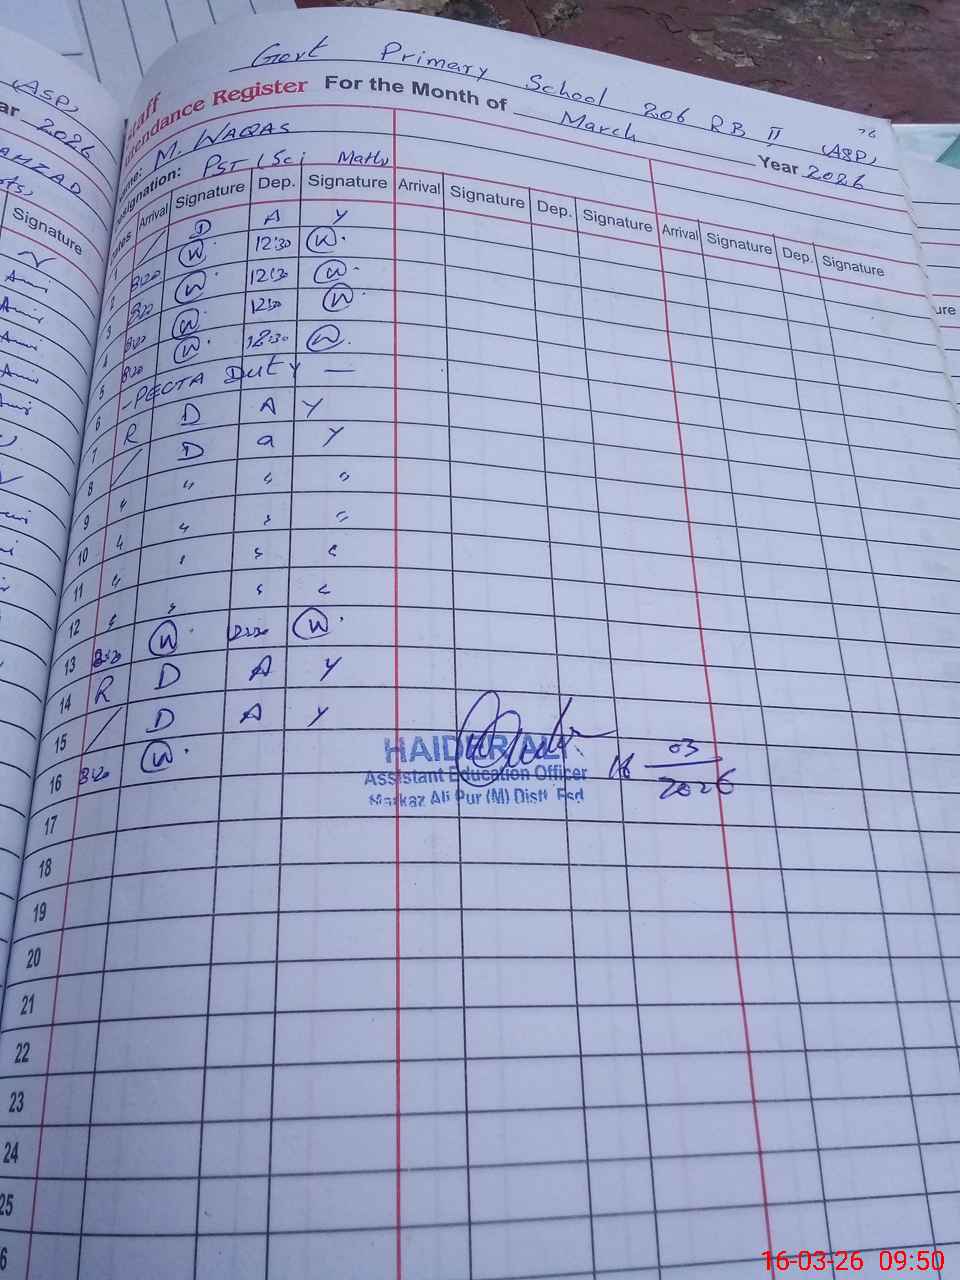 Govt Primary School 206 RB II (ASP)
Staff
Attendance Register For the Month of March Year 2026
Name: M. WAQAS
Designation: PST (Sci Math)
Dates Arrival Signature Dep. Signature Arrival Signature Dep. Signature Arrival Signature Dep. Signature
1 / D A Y
2 8:20 W. 12:30 W.
3 8:20 W. 12:30 W.
4 8:20 W. 12:30 W.
5 8:20 W. 12:30 W.
6 -PECTA Duty -
7 R D A Y
8 / D a Y
9 " " " "
10 " " " "
11 " " " "
12 " " " "
13 8:20 W. 12:30 W.
14 R D A Y
15 / D A Y
16 8:20 W.
HAIDER ALI
Assistant Education Officer
Markaz Ali Pur (M) Distt Fsd
16 03
2026
17
18
19
20
21
22
23
24
25
(ASP)
Year 2026
Signature
16-03-26 09:50